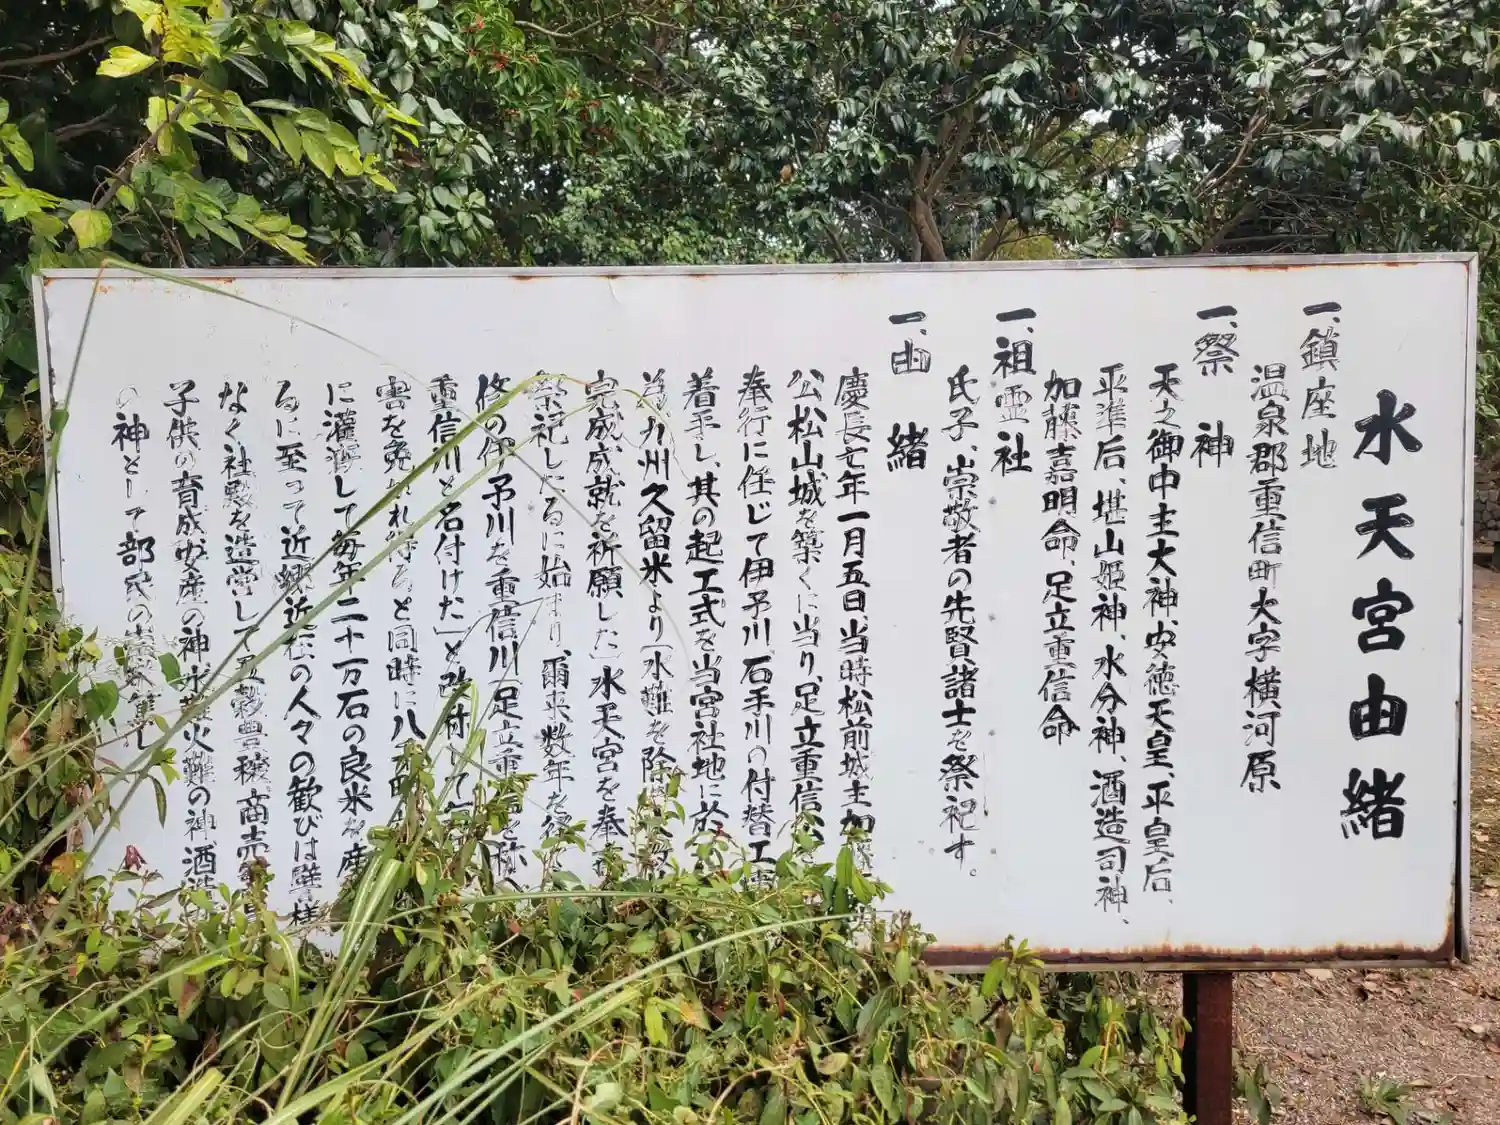 水天宮由緒
一、鎮座地
温泉郡重信町大字横河原
一、祭神
天之御中主大神、安徳天皇、平皇后、
平準后、堪山姫神、水分神、酒造司神、
加藤嘉明命、足立重信命
一、祖霊社
氏子、崇敬者の先賢諸士を祭祀す。
一、由緒
慶長七年一月五日、当時松前城主加
公松山城を築くに当り、足立重信
奉行に任じて伊予川、石手川の付替工
着手し、其の起工式を当宮社地に於
為九州久留米より「水難を除
完成成就を祈願した「水天宮を奉
祭祀したるに始まり、爾来数年を
修の伊予川を重信川「足立重信を称へ
重信川と名付けた」と改
害を免れ得ると同時に八
に灌漑して毎年二十万石の良米を産
るに至って近郷近在の人々の歓びは
なく社殿を造営して五穀豊穣、商売
子供の育成安産の神、水難火難の神、酒造
の神として部民の